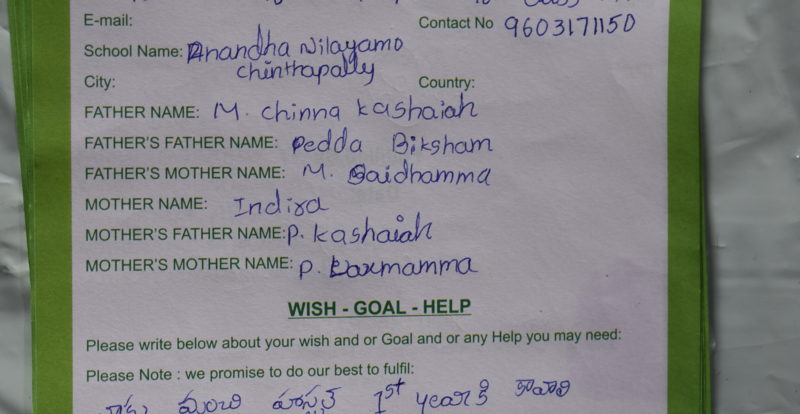 E-mail: Contact No 9603171150
School Name: Anandha Nilayamo
chinthapally
City: Country:
FATHER NAME: M. chinna kashaiah
FATHER'S FATHER NAME: pedda Biksham
FATHER'S MOTHER NAME: M. Saidhamma
MOTHER NAME: Indira
MOTHER'S FATHER NAME: P. kashaiah
MOTHER'S MOTHER NAME: P. Laxmamma
WISH - GOAL - HELP
Please write below about your wish and or Goal and or any Help you may need:
Please Note : we promise to do our best to fulfil:
నాకు మంచి హాస్టల్ 1st year కి కావాలి